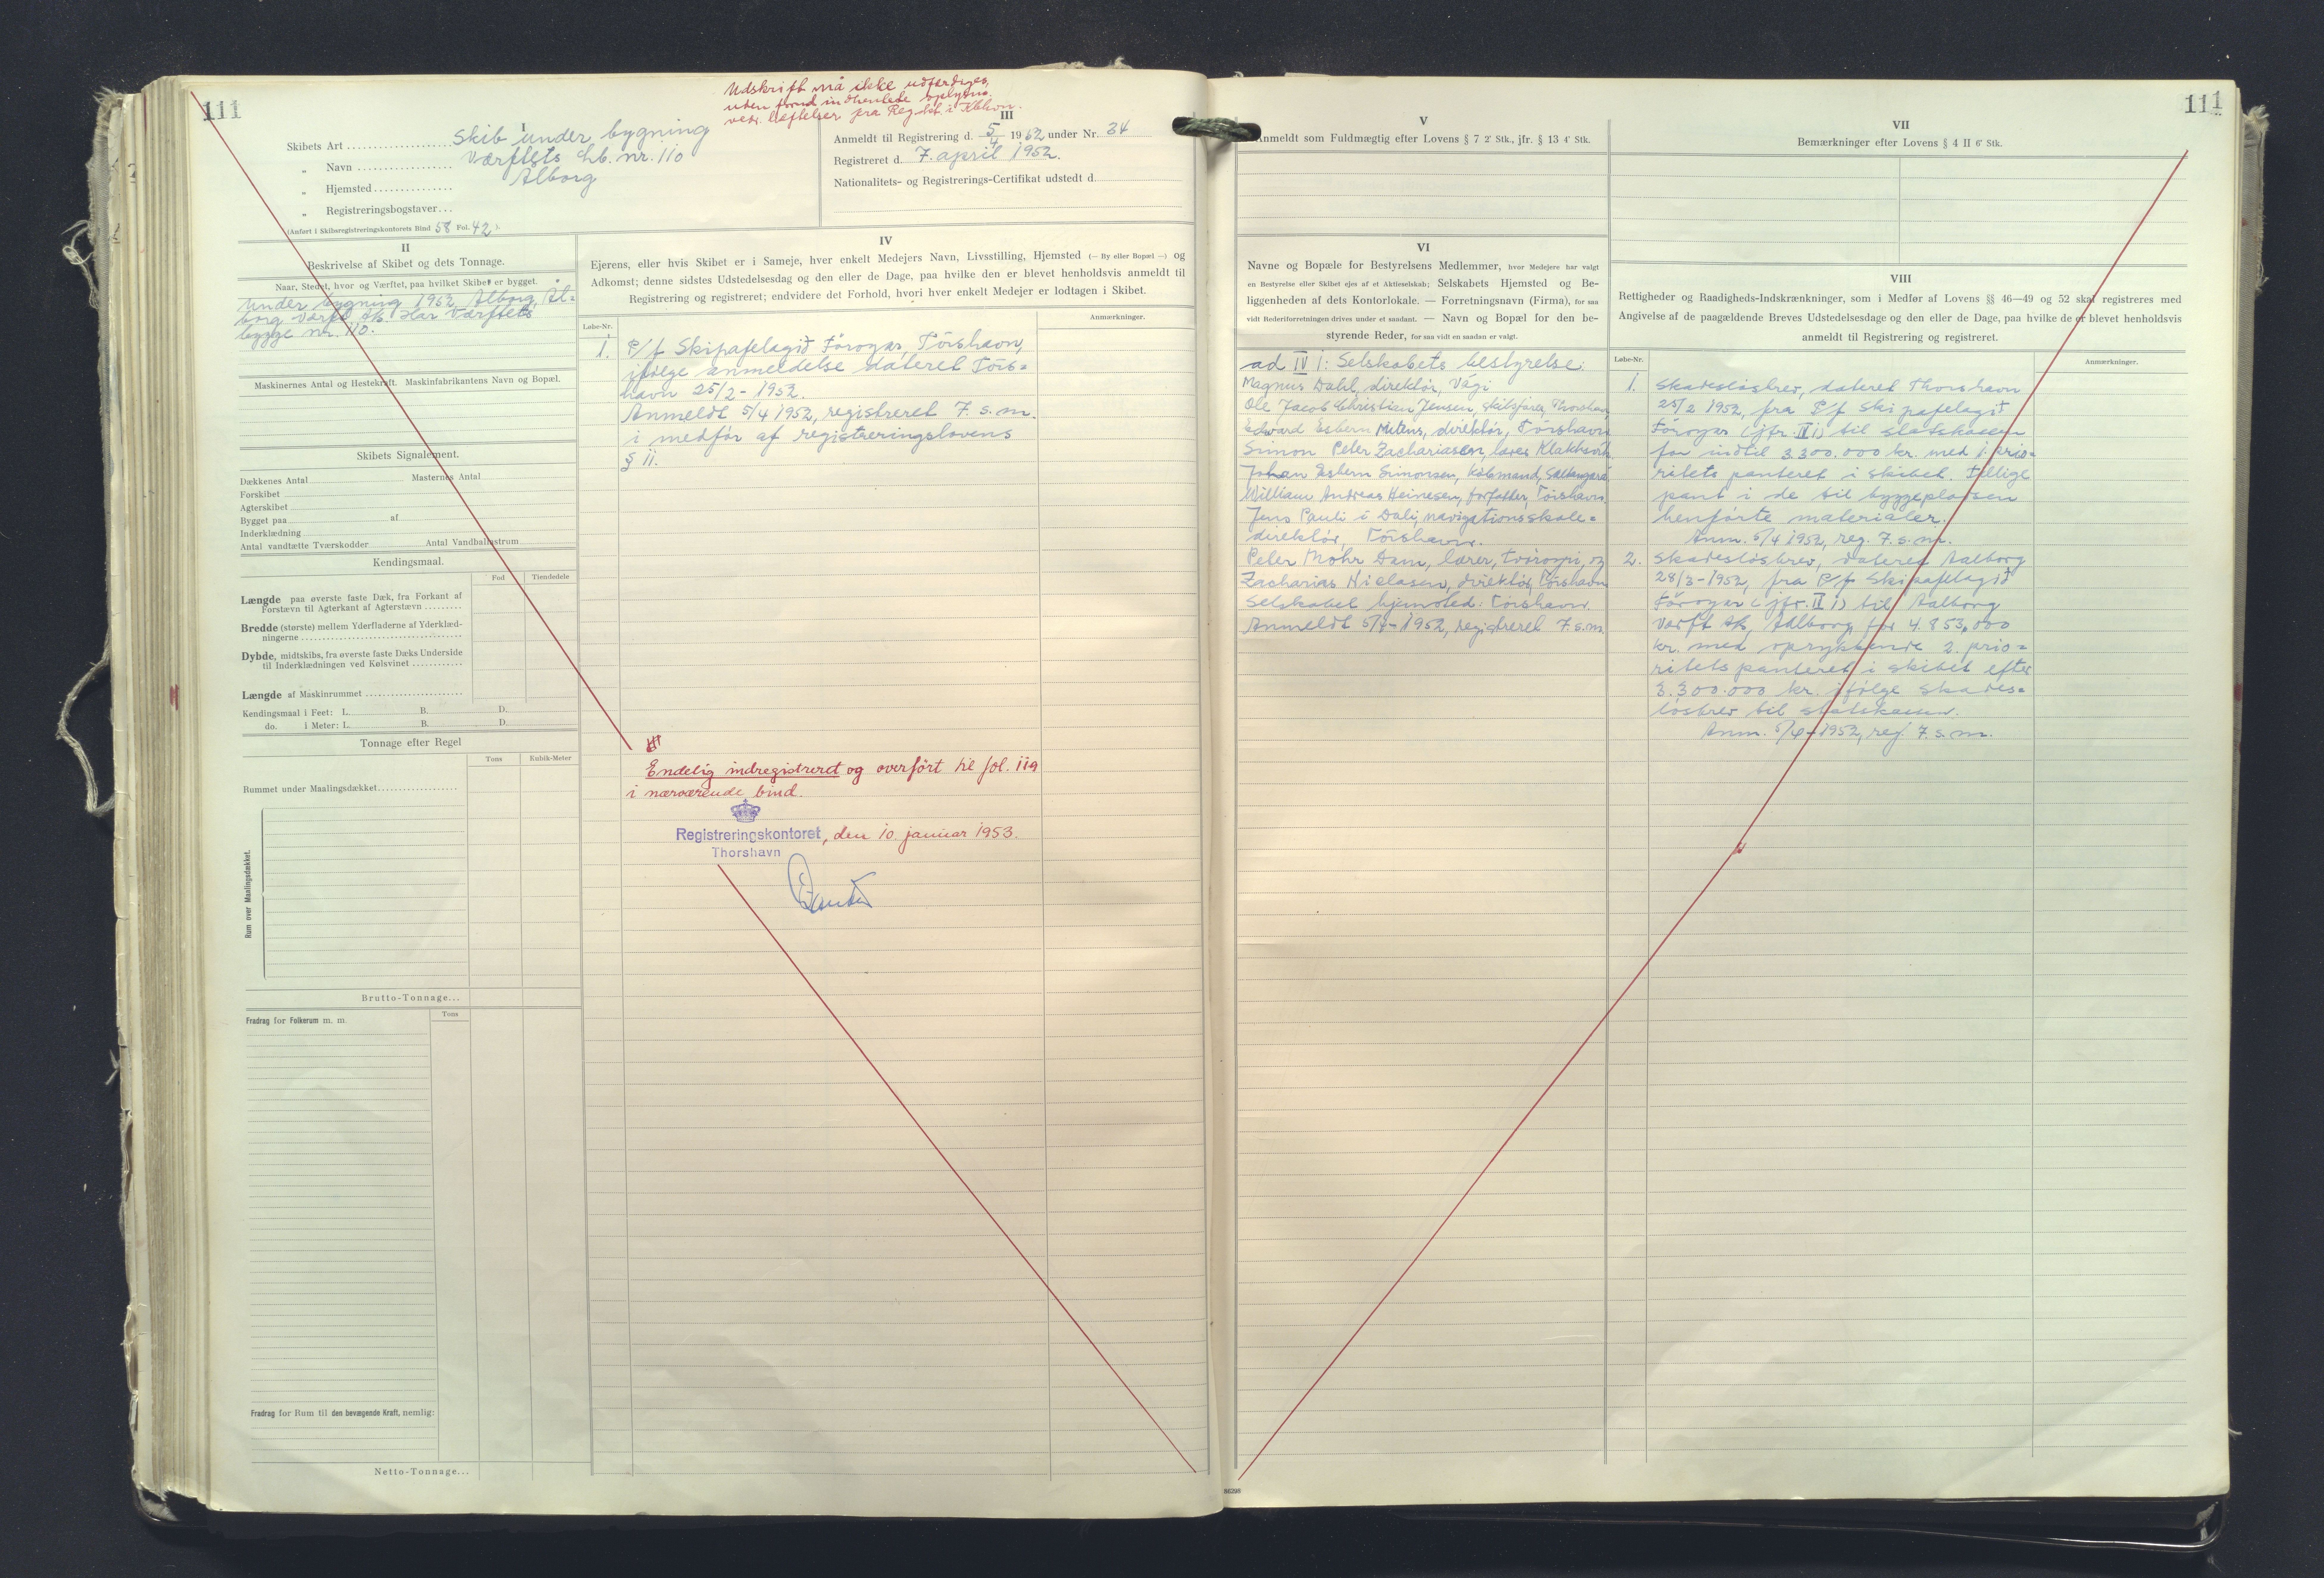 111
Udskrift må ikke udfærdiges,
uden forud indhentede oplysn.
vedr. hæftelser fra Reg.kt. i Kbhvn.
I
Skibets Art .................... Skib under bygning
„ Navn ................. Værftets Lb. nr. 110
„ Hjemsted .............. Ålborg
„ Registreringsbogstaver ...
(Anført i Skibsregistreringskontorets Bind 58 Fol. 42).
III
Anmeldt til Registrering d. 5/4 1952 under Nr. 34
Registreret d. 7. april 1952.
Nationalitets- og Registrerings-Certifikat udstedt d.
II
Beskrivelse af Skibet og dets Tonnage.
Naar, Stedet, hvor og Værftet, paa hvilket Skibet er bygget.
Under bygning 1952, Ålborg, Ål=
borg Værft A/s. Har Værftets
bygge nr. 110.
Maskinernes Antal og Hestekraft. Maskinfabrikantens Navn og Bopæl.
Skibets Signalement.
Dækkenes Antal Masternes Antal
Forskibet
Agterskibet
Bygget paa af
Inderklædning
Antal vandtætte Tværskodder Antal Vandballastrum
Kendingsmaal.
Fod Tiendedele
Længde paa øverste faste Dæk, fra Forkant af
Forstævn til Agterkant af Agterstævn .........
Bredde (største) mellem Yderfladerne af Yderklæd-
ningerne ........................................
Dybde, midtskibs, fra øverste faste Dæks Underside
til Inderklædningen ved Kølsvinet ............
Længde af Maskinrummet ........................
Kendingsmaal i Feet: L. B. D.
do. i Meter: L. B. D.
Tonnage efter Regel
Tons Kubik-Meter
Rummet under Maalingsdækket....................
Rum over Maalingsdækket.
Brutto-Tonnage...
Fradrag for Folkerum m. m.
Tons
Fradrag for Rum til den bevægende Kraft, nemlig:
Netto-Tonnage...
IV
Ejerens, eller hvis Skibet er i Sameje, hver enkelt Medejers Navn, Livsstilling, Hjemsted (— By eller Bopæl —) og
Adkomst; denne sidstes Udstedelsesdag og den eller de Dage, paa hvilke den er blevet henholdsvis anmeldt til
Registrering og registreret; endvidere det Forhold, hvori hver enkelt Medejer er lodtagen i Skibet.
Løbe-Nr.
Anmærkninger.
1. P/f Skipafelagið Føroyar, Tórshavn,
ifølge anmeldelse dateret Tórs=
havn 25/2 - 1953.
Anmeldt 5/4 1952, registreret 7. s. m.
i medfør af registreringslovens
§ 11.
Endelig indregistreret og overført til fol. 119
i nærværende bind.
Registreringskontoret, den 10. januar 1953.
Thorshavn
111
V
Anmeldt som Fuldmægtig efter Lovens § 7 2' Stk., jfr. § 13 4' Stk.
VI
Navne og Bopæle for Bestyrelsens Medlemmer, hvor Medejere har valgt
en Bestyrelse eller Skibet ejes af et Aktieselskab; Selskabets Hjemsted og Be-
liggenheden af dets Kontorlokale. — Forretningsnavn (Firma), for saa
vidt Rederiforretningen drives under et saadant. — Navn og Bopæl for den be-
styrende Reder, for saa vidt en saadan er valgt.
ad IV 1: Selskabets bestyrelse:
Magnus Dahl, direktør, Vági
Ole Jacob Christian Jensen, skibsfører, Thorshavn,
Edward Esbern Mitens, direktør, Tórshavn
Simon Peter Zachariasen, lærer, Klakksvík,
Johan Esbern Simonsen, købmand, Saltangará,
William Andreas Heinesen, forfatter, Tórshavn,
Jens Pauli í Dali, navigationsskole=
direktør, Tórshavn.
Peter Mohr Dam, lærer, Tvøroyri, og
Zacharias Nielasen, direktør, Tórshavn
Selskabet hjemsted: Tórshavn.
Anmeldt 5/4-1952, registreret 7. s. m.
VII
Bemærkninger efter Lovens § 4 II 6' Stk.
VIII
Rettigheder og Raadigheds-Indskrænkninger, som i Medfør af Lovens §§ 46—49 og 52 skal registreres med
Angivelse af de paagældende Breves Udstedelsesdage og den eller de Dage, paa hvilke de er blevet henholdsvis
anmeldt til Registrering og registreret.
Løbe-Nr.
Anmærkninger.
1. Skadesløsbrev, dateret Thorshavn
25/2 1952, fra P/f Skipafelagið
Føroyar (jfr. IV 1) til statskassen
for indtil 3.300.000 kr. med 1. prio=
ritets panteret i skibet. Tillige
pant i de til byggepladsen
henførte materialer.
Anm. 5/4 1952, reg. 7. s. m.
2. Skadesløsbrev, dateret Aalborg
28/3-1952, fra P/f Skipafelagið
Føroyar (jfr. II 1) til Aalborg
Værft A/s, Aalborg for 4.853.000
kr. med oprykkende 2. prio=
ritets panteret i skibet efter
3.300.000 kr. ifølge skades=
løsbrev til statskassen.
Anm. 5/4-1952, reg. 7. s. m.
86298